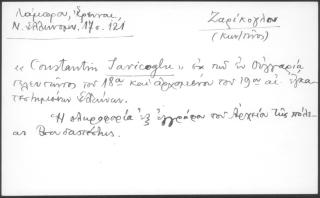 Λάμπρου, Έρευναι,
Ν. Ελληνομν. 17σ. 121
Ζαρίκογλου
(Κων/τῖνος)
"Constantin Saricoglu" εκ των εν Ουγγαρία
τελευτῶντος του 18ου και αρχομένου του 19ου αἰ. ἐγκα-
τεστημένων Ελλήνων.
Η πληροφορία ἐξ ἐγγράφου του Αρχείου τῆς πόλε-
ως Βουδαπέστης.